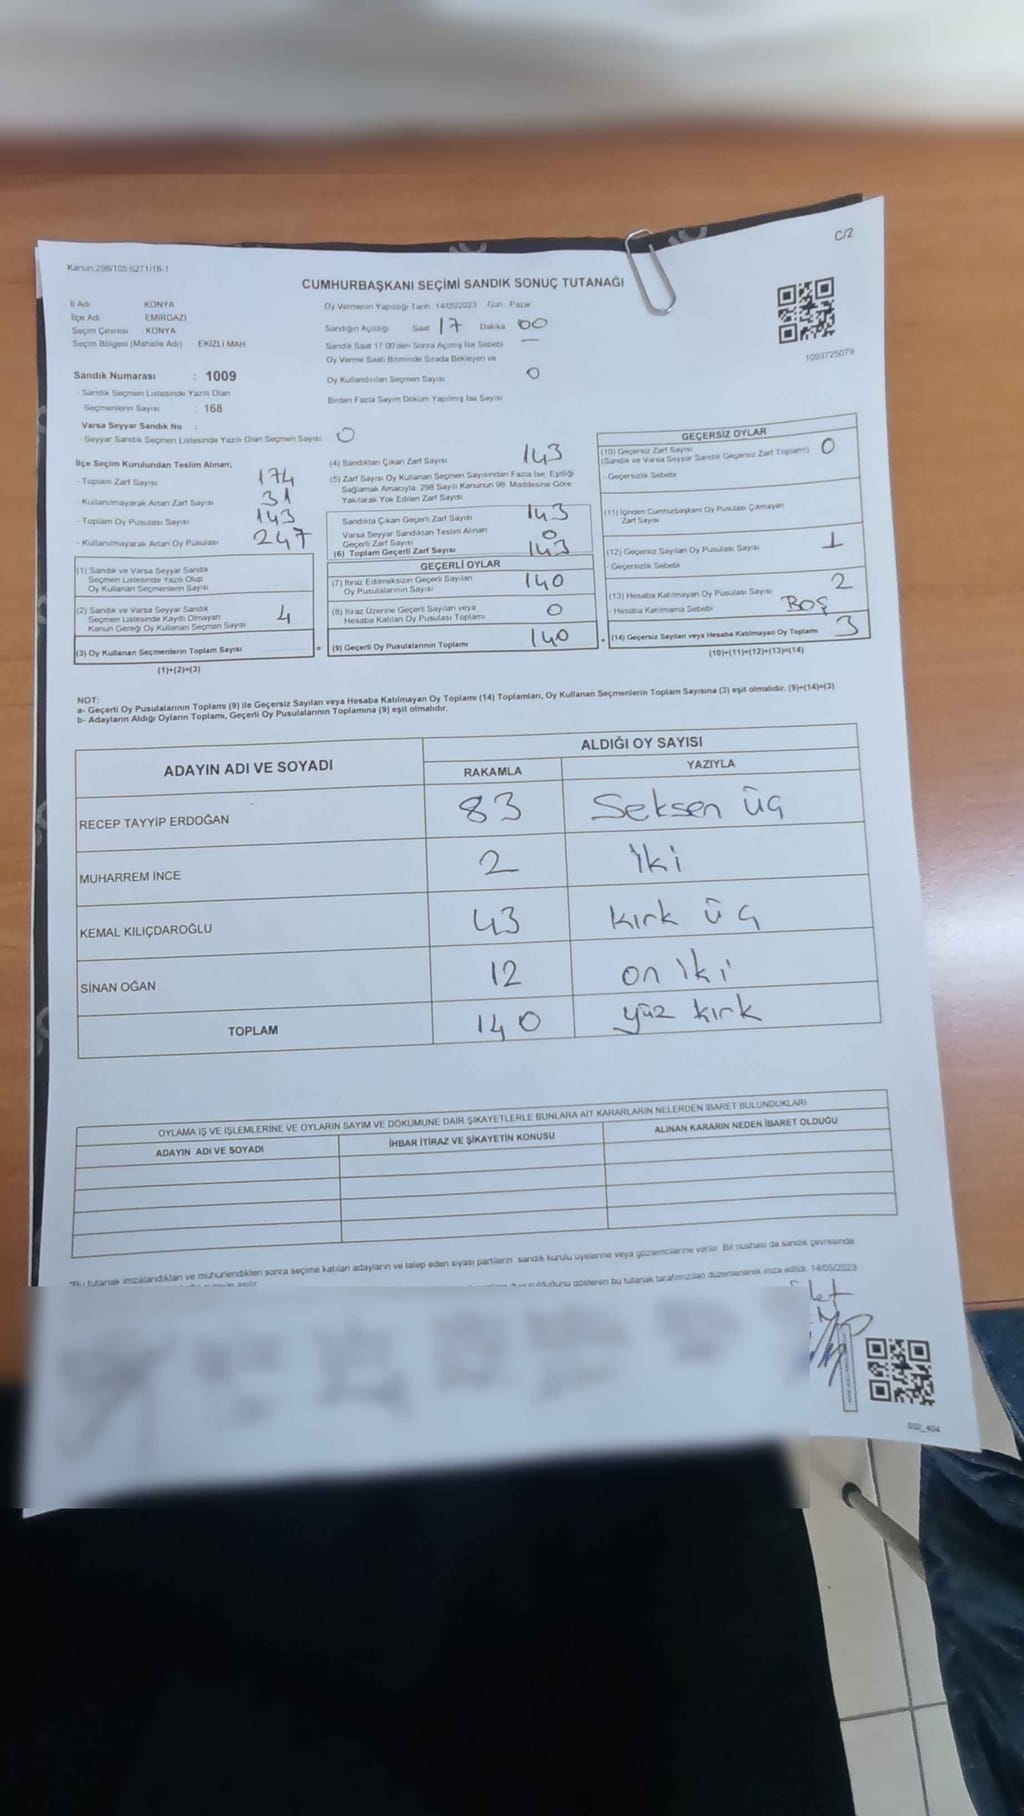 C/2
Kanun:298/105.6271/18-1
CUMHURBAŞKANI SEÇİMİ SANDIK SONUÇ TUTANAĞI
İl Adı KONYA
İlçe Adı EMİRGAZİ
Seçim Çevresi KONYA
Seçim Bölgesi (Mahalle Adı) EKİZLİ MAH
Sandık Numarası : 1009
- Sandık Seçmen Listesinde Yazılı Olan
Seçmenlerin Sayısı : 168
Varsa Seyyar Sandık No :
- Seyyar Sandık Seçmen Listesinde Yazılı Olan Seçmen Sayısı: 0
Oy Vermenin Yapıldığı Tarih 14/05/2023 Gün Pazar
Sandığın Açıldığı Saat 17 Dakika 00
Sandık Saat 17:00'den Sonra Açımış İse Sebebi —
Oy Verme Saati Bitiminde Sırada Bekleyen ve
Oy Kullandırılan Seçmen Sayısı 0
Birden Fazla Sayım Döküm Yapılmış İse Sayısı
1093725079
İlçe Seçim Kurulundan Teslim Alınan;
- Toplam Zarf Sayısı 174
- Kullanılmayarak Artan Zarf Sayısı 31
- Toplam Oy Pusulası Sayısı 143
- Kullanılmayarak Artan Oy Pusulası 247
(1) Sandık ve Varsa Seyyar Sandık
Seçmen Listesinde Yazılı Olup
Oy Kullanan Seçmenlerin Sayısı
(2) Sandık ve Varsa Seyyar Sandık
Seçmen Listesinde Kayıtlı Olmayan
Kanun Gereği Oy Kullanan Seçmen Sayısı 4
(3) Oy Kullanan Seçmenlerin Toplam Sayısı
(1)+(2)=(3)
(4) Sandıktan Çıkan Zarf Sayısı 143
(5) Zarf Sayısı Oy Kullanan Seçmen Sayısından Fazla İse, Eşitliği
Sağlamak Amacıyla; 298 Sayılı Kanunun 98. Maddesine Göre
Yakılarak Yok Edilen Zarf Sayısı
Sandıkta Çıkan Geçerli Zarf Sayısı 143
Varsa Seyyar Sandıktan Teslim Alınan
Geçerli Zarf Sayısı 0
(6) Toplam Geçerli Zarf Sayısı 143
GEÇERLİ OYLAR
(7) İtiraz Edilmeksizin Geçerli Sayılan
Oy Pusulalarının Sayısı 140
(8) İtiraz Üzerine Geçerli Sayılan veya
Hesaba Katılan Oy Pusulası Toplamı 0
= (9) Geçerli Oy Pusulalarının Toplamı 140
GEÇERSİZ OYLAR
(10) Geçersiz Zarf Sayısı
(Sandık ve Varsa Seyyar Sandık Geçersiz Zarf Toplamı) 0
- Geçersizlik Sebebi
(11) İçinden Cumhurbaşkanı Oy Pusulası Çıkmayan
Zarf Sayısı
(12) Geçersiz Sayılan Oy Pusulası Sayısı 1
- Geçersizlik Sebebi
(13) Hesaba Katılmayan Oy Pusulası Sayısı 2
- Hesaba Katılmama Sebebi Boş
+ (14) Geçersiz Sayılan veya Hesaba Katılmayan Oy Toplamı 3
(10)+(11)+(12)+(13)=(14)
NOT:
a- Geçerli Oy Pusulalarının Toplamı (9) ile Geçersiz Sayılan veya Hesaba Katılmayan Oy Toplamı (14) Toplamları, Oy Kullanan Seçmenlerin Toplam Sayısına (3) eşit olmalıdır. (9)+(14)=(3)
b- Adayların Aldığı Oyların Toplamı, Geçerli Oy Pusulalarının Toplamına (9) eşit olmalıdır.
ADAYIN ADI VE SOYADI ALDIĞI OY SAYISI
RAKAMLA YAZIYLA
RECEP TAYYİP ERDOĞAN 83 Seksen üç
MUHARREM İNCE 2 iki
KEMAL KILIÇDAROĞLU 43 kırk üç
SİNAN OĞAN 12 on iki
TOPLAM 140 yüz kırk
OYLAMA İŞ VE İŞLEMLERİNE VE OYLARIN SAYIM VE DÖKÜMÜNE DAİR ŞİKAYETLERLE BUNLARA AİT KARARLARIN NELERDEN İBARET BULUNDUKLARI
ADAYIN ADI VE SOYADI İHBAR İTİRAZ VE ŞİKAYETİN KONUSU ALINAN KARARIN NEDEN İBARET OLDUĞU
*Bu tutanak imzalandıktan ve mühürlendikten sonra seçime katılan adayların ve talep eden siyasi partilerin sandık kurulu üyelerine veya gözlemcilerine verilir. Bir nüshası da sandık çevresinde
gösteren bu tutanak tarafımızdan düzenlenerek imza edildi. 14/05/2023